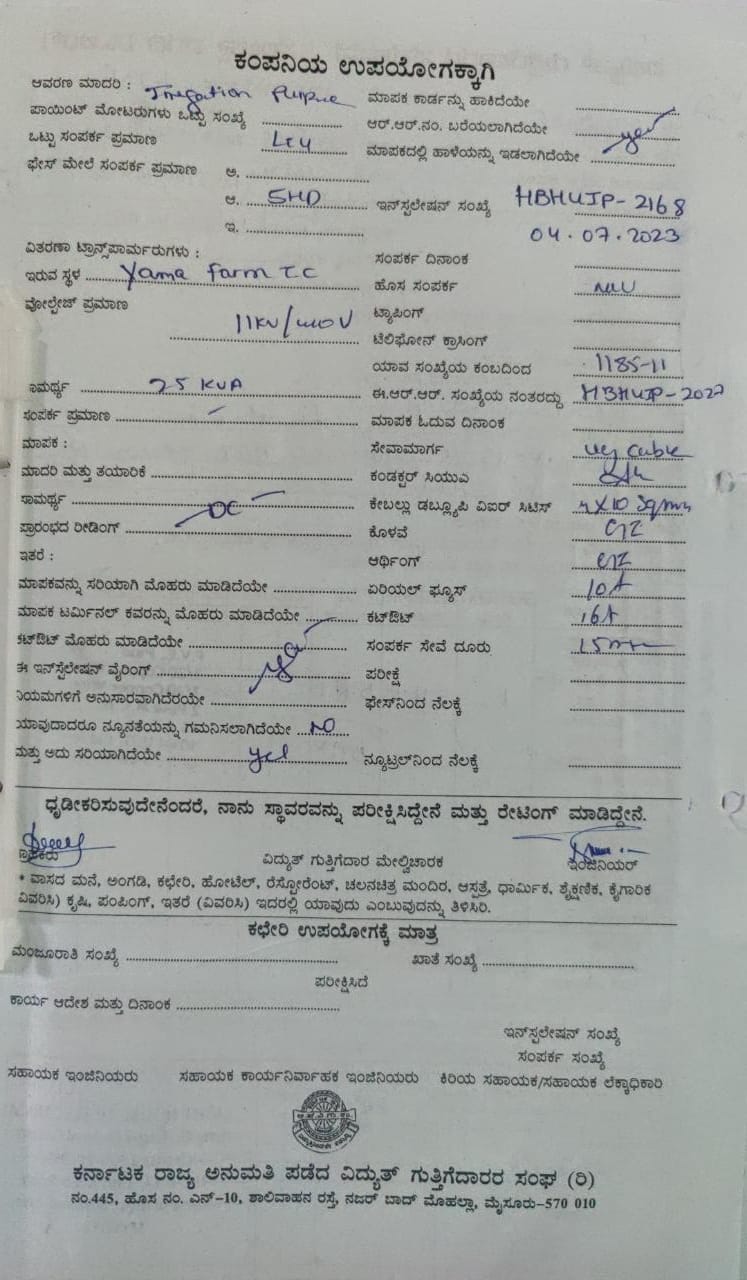 ಕಂಪನಿಯ ಉಪಯೋಗಕ್ಕಾಗಿ
ಆವರಣ ಮಾದರಿ : Irregation Purpue ಮಾಪಕ ಕಾರ್ಡನ್ನು ಹಾಕಿದೆಯೇ
ಪಾಯಿಂಟ್ ಮೋಟರುಗಳು ಒಟ್ಟು ಸಂಖ್ಯೆ ಆರ್.ಆರ್.ನಂ. ಬರೆಯಲಾಗಿದೆಯೇ yes
ಒಟ್ಟು ಸಂಪರ್ಕ ಪ್ರಮಾಣ ಮಾಪಕದಲ್ಲಿ ಹಾಳೆಯನ್ನು ಇಡಲಾಗಿದೆಯೇ
ಫೇಸ್ ಮೇಲೆ ಸಂಪರ್ಕ ಪ್ರಮಾಣ ಅ.
ಆ. 5HP ಇನ್‌ಸ್ಟಲೇಷನ್ ಸಂಖ್ಯೆ HBHUIP-2168
ಇ. 04.07.2023
ವಿತರಣಾ ಟ್ರಾನ್ಸ್‌ಪಾರ್ಮರುಗಳು : ಸಂಪರ್ಕ ದಿನಾಂಕ
ಇರುವ ಸ್ಥಳ Yama farm T.C ಹೊಸ ಸಂಪರ್ಕ
ವೋಲ್ಟೇಜ್ ಪ್ರಮಾಣ 11KV/440V ಟ್ಯಾಪಿಂಗ್
ಟೆಲಿಫೋನ್ ಕ್ರಾಸಿಂಗ್
ಯಾವ ಸಂಖ್ಯೆಯ ಕಂಬದಿಂದ 1185-11
ಸಾಮರ್ಥ್ಯ 25 KVA ಈ.ಆರ್.ಆರ್. ಸಂಖ್ಯೆಯ ನಂತರದ್ದು HBHUIP-2027
ಸಂಪರ್ಕ ಪ್ರಮಾಣ ಮಾಪಕ ಓದುವ ದಿನಾಂಕ
ಮಾಪಕ : ಸೇವಾಮಾರ್ಗ ug cable
ಮಾದರಿ ಮತ್ತು ತಯಾರಿಕೆ ಕಂಡಕ್ಟರ್ ಸಿಯುಎ
ಸಾಮರ್ಥ್ಯ DC ಕೇಬಲ್ಲು ಡಬ್ಲ್ಯೂಪಿ ವಿಐರ್ ಸಿಟಿಸ್ 4X10 Sqmm
ಪ್ರಾರಂಭದ ರೀಡಿಂಗ್ ಕೊಳವೆ GI
ಇತರೆ : ಆರ್ಥಿಂಗ್ GI
ಮಾಪಕವನ್ನು ಸರಿಯಾಗಿ ಮೊಹರು ಮಾಡಿದೆಯೇ ಏರಿಯಲ್ ಫ್ಯೂಸ್ 10A
ಮಾಪಕ ಟರ್ಮಿನಲ್ ಕವರನ್ನು ಮೊಹರು ಮಾಡಿದೆಯೇ ಕಟ್‌ಔಟ್ 16A
ಕಟ್‌ಔಟ್ ಮೊಹರು ಮಾಡಿದೆಯೇ ಸಂಪರ್ಕ ಸೇವೆ ದೂರು
ಈ ಇನ್‌ಸ್ಟಲೇಷನ್ ವೈರಿಂಗ್ ಪರೀಕ್ಷೆ
ನಿಯಮಗಳಿಗೆ ಅನುಸಾರವಾಗಿದೆರಯೇ ಫೇಸ್‌ನಿಂದ ನೆಲಕ್ಕೆ
ಯಾವುದಾದರೂ ನ್ಯೂನತೆಯನ್ನು ಗಮನಿಸಲಾಗಿದೆಯೇ NO
ಮತ್ತು ಅದು ಸರಿಯಾಗಿದೆಯೇ yes ನ್ಯೂಟ್ರಲ್‌ನಿಂದ ನೆಲಕ್ಕೆ
ಧೃಡೀಕರಿಸುವುದೇನೆಂದರೆ, ನಾನು ಸ್ಥಾವರವನ್ನು ಪರೀಕ್ಷಿಸಿದ್ದೇನೆ ಮತ್ತು ರೇಟಿಂಗ್ ಮಾಡಿದ್ದೇನೆ.
ವಿದ್ಯುತ್ ಗುತ್ತಿಗೆದಾರ ಮೇಲ್ವಿಚಾರಕ ಇಂಜಿನಿಯರ್
* ವಾಸದ ಮನೆ, ಅಂಗಡಿ, ಕಛೇರಿ, ಹೋಟೆಲ್, ರೆಸ್ಟೋರೆಂಟ್, ಚಲನಚಿತ್ರ ಮಂದಿರ, ಆಸ್ಪತ್ರೆ, ಧಾರ್ಮಿಕ, ಶೈಕ್ಷಣಿಕ, ಕೈಗಾರಿಕ
ವಿವರಿಸಿ) ಕೃಷಿ, ಪಂಪಿಂಗ್, ಇತರೆ (ವಿವರಿಸಿ) ಇದರಲ್ಲಿ ಯಾವುದು ಎಂಬುವುದನ್ನು ತಿಳಿಸಿರಿ.
ಕಛೇರಿ ಉಪಯೋಗಕ್ಕೆ ಮಾತ್ರ
ಮಂಜೂರಾತಿ ಸಂಖ್ಯೆ ಖಾತೆ ಸಂಖ್ಯೆ
ಪರೀಕ್ಷಿಸಿದೆ
ಕಾರ್ಯ ಆದೇಶ ಮತ್ತು ದಿನಾಂಕ
ಇನ್‌ಸ್ಪಲೇಷನ್ ಸಂಖ್ಯೆ
ಸಂಪರ್ಕ ಸಂಖ್ಯೆ
ಸಹಾಯಕ ಇಂಜಿನಿಯರು ಸಹಾಯಕ ಕಾರ್ಯನಿರ್ವಾಹಕ ಇಂಜಿನಿಯರು ಕಿರಿಯ ಸಹಾಯಕ/ಸಹಾಯಕ ಲೆಕ್ಕಾಧಿಕಾರಿ
ಕರ್ನಾಟಕ ರಾಜ್ಯ ಅನುಮತಿ ಪಡೆದ ವಿದ್ಯುತ್ ಗುತ್ತಿಗೆದಾರರ ಸಂಘ (ರಿ)
ನಂ.445, ಹೊಸ ನಂ. ಎನ್-10, ಶಾಲಿವಾಹನ ರಸ್ತೆ, ನಜರ್ ಬಾದ್ ಮೊಹಲ್ಲಾ, ಮೈಸೂರು-570 010